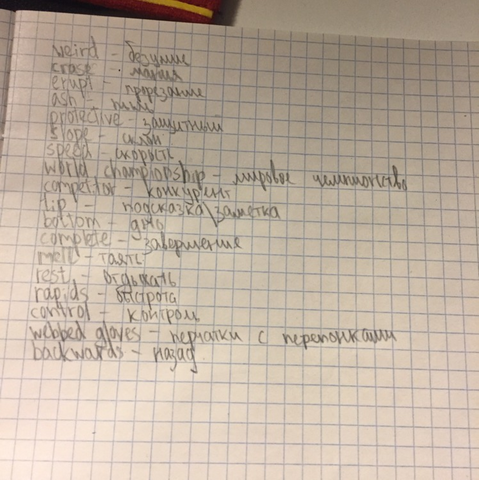 weird - безумие
craze - мания
erupt - прорезание
ash - пыль
protective - защитный
slope - склон
speed - скорость
world championship - мировое чемпионство
competitor - конкурент
tip - подсказка\заметка
bottom - дно
complete - завершение
melt - таять
rest - отдыхать
rapids - быстрота
control - контроль
webbed gloves - перчатки с перепонками
backwards - назад